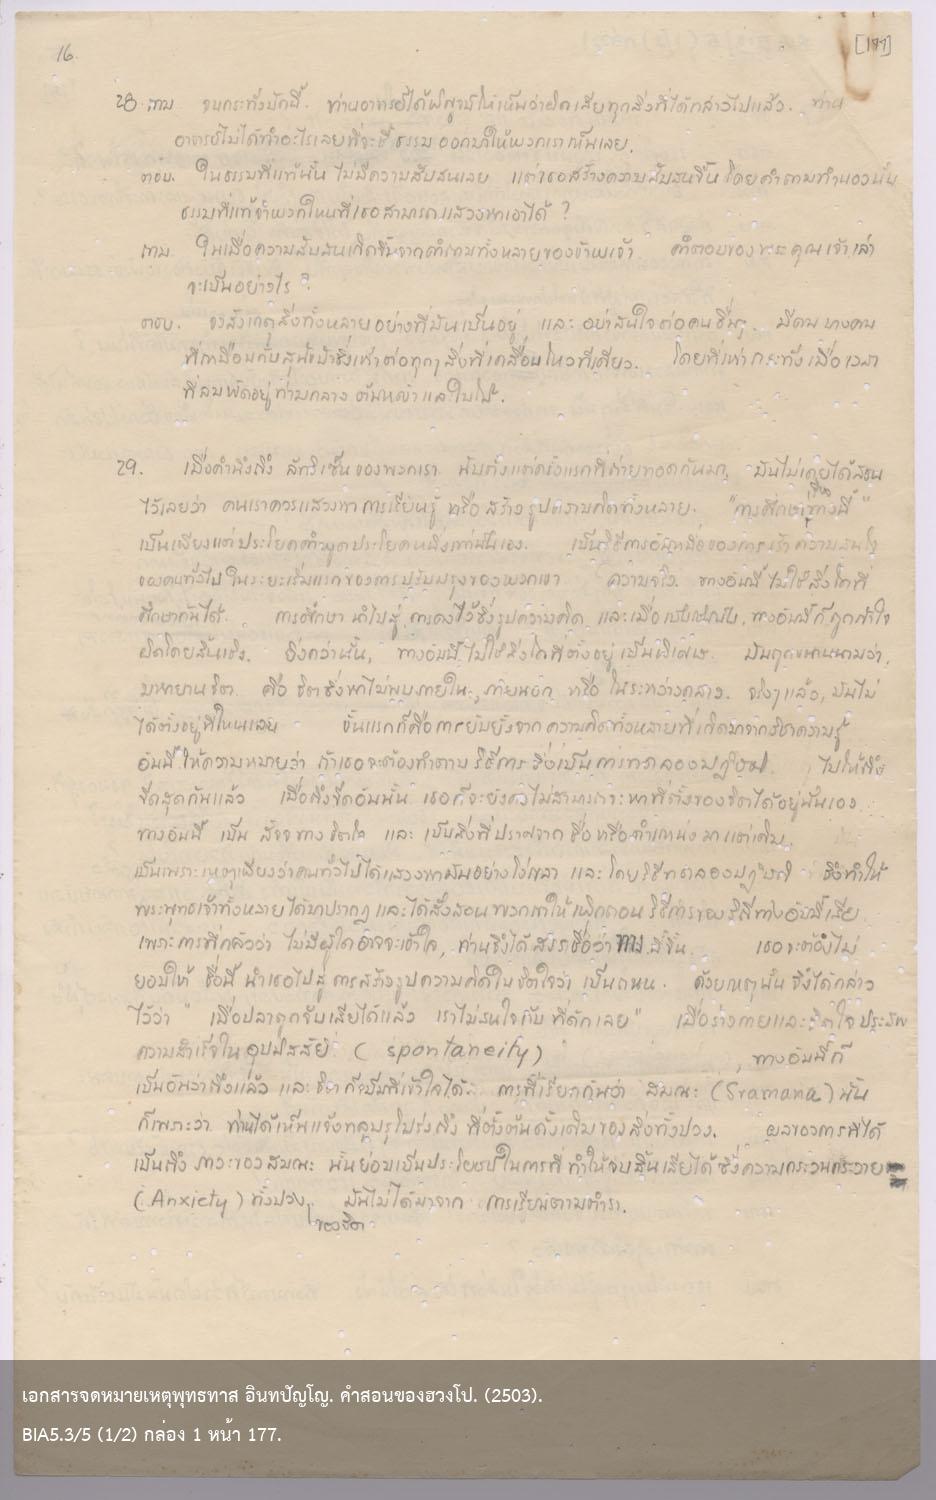 16.
[177]
28. ถาม จนกระทั่งบัดนี้. ท่านอาจารย์ได้พิสูจน์ให้เห็นว่าผิดเสียทุกสิ่งที่ได้กล่าวไปแล้ว. ท่าน
อาจารย์ไม่ได้ทำอะไรเลยที่จะชี้ธรรมออกมาให้พวกเราเห็นเลย.
ตอบ. ในธรรมที่แท้นั้น ไม่มีความสับสนเลย แต่เธอสร้างความสับสนขึ้น โดยคำถามทำนองนั้น
ธรรมที่แท้จำพวกไหนที่เธอสามารถแสวงหาเอาได้ ?
ถาม. ในเมื่อความสับสนเกิดขึ้นจากคำถามทั้งหลายของข้าพเจ้า คำตอบของพระคุณเจ้าเล่า
จะเป็นอย่างไร ?
ตอบ. จงสังเกตุสิ่งทั้งหลายอย่างที่มันเป็นอยู่ และอย่าสนใจต่อคนอื่นๆ. มีคนบางคน
ที่เหมือนกับสุนัขบ้าซึ่งเห่าต่อทุกๆสิ่งที่เคลื่อนไหวทีเดียว. โดยที่เห่ากระทั่งเมื่อเวลา
ที่ลมพัดอยู่ท่ามกลางต้นหญ้าและใบไม้.
29. เมื่อคำนึงถึง ลัทธิเซ็นของพวกเรา นับตั้งแต่ครั้งแรกที่ถ่ายทอดกันมา, มันไม่เคยได้สอน
ไว้เลยว่า คนเราควรแสวงหาการเรียนรู้ หรือสร้างรูปความคิดทั้งหลาย. "การศึกษาเรื่องทางนี้"
เป็นเพียงแต่ประโยคคำพูดประโยคหนึ่งเท่านั้นเอง. เป็นวิธีการอันหนึ่งของการเร้าความสนใจ
ของคนทั่วไปในระยะเริ่มแรกของการปรับปรุงของพวกเขา ความจริง ทางอันนี้ไม่ใช่สิ่งใดที่
ศึกษากันได้. การศึกษานำไปสู่การคงไว้ซึ่งรูปความคิด และเมื่อเป็นเช่นนั้น, ทางอันนี้ก็ถูกเข้าใจ
ผิดโดยสิ้นเชิง. ยิ่งกว่านั้น, ทางอันนี้ไม่ใช่สิ่งใดที่ตั้งอยู่เป็นพิเศษ. มันถูกขนานนามว่า,
มหายานจิต. คือ จิตซึ่งหาไม่พบภายใน, ภายนอก หรือในระหว่างกลาง. จริงๆแล้ว, มันไม่
ได้ตั้งอยู่ที่ไหนเลย ขั้นแรกก็คือการยับยั้งจากความคิดทั้งหลายที่เกิดมาจากวิชาความรู้
อันนี้ให้ความหมายว่า ถ้าเธอจะต้องทำตามวิธีการซึ่งเป็นการทดลองปฏิบัติ ไปให้ถึง
ขีดสุดกันแล้ว เมื่อถึงขีดอันนั้น เธอก็จะยังคงไม่สามารถจะหาที่ตั้งของจิตได้อยู่นั่นเอง
ทางอันนี้ เป็น สัจจทางจิตใจ และ เป็นสิ่งที่ปราศจากชื่อหรือตำแหน่งมาแต่เดิม.
เป็นเพราะเหตุเพียงว่าคนทั่วไปได้แสวงหามันอย่างโง่เขลา และโดยวิธีทดลองปฏิบัติ จึงทำให้
พระพุทธเจ้าทั้งหลายได้มาปรากฏและได้สั่งสอนพวกเขาให้เพิกถอนวิธีการของวิถีทางอันนี้เสีย
เพราะการที่กลัวว่า ไม่มีผู้ใดอาจจะเข้าใจ, ท่านจึงได้สรรชื่อว่า ทาง นี้ขึ้น. เธอจะต้องไม่
ยอมให้ ชื่อนี้ นำเธอไปสู่การสร้างรูปความคิดในจิตใจว่า เป็นถนน. ด้วยเหตุนั้นจึงได้กล่าว
ไว้ว่า "เมื่อปลาถูกจับเสียได้แล้ว เราไม่สนใจกับที่ดักเลย" เมื่อร่างกายและจิตใจประสพ
ความสำเร็จในอุปนิสสัย (spontaneity) , ทางอันนี้ก็
เป็นอันว่าถึงแล้ว และจิตก็เป็นที่เข้าใจได้. การที่เรียกกันว่า สมณะ (Sramana) นั้น
ก็เพราะว่า ท่านได้เห็นแจ้งทลุปรุโปร่งถึง ที่ตั้งต้นดั้งเดิมของสิ่งทั้งปวง. ผลของการที่ได้
เป็นถึงภาวะของสมณะ นั้นย่อมเป็นประโยชน์ในการที่ทำให้จบสิ้นเสียได้ซึ่งความกระวนกระวาย
(Anxiety) ทั้งปวง มันไม่ได้มาจาก การเรียนตามตำรา.
ของจิต
เอกสารจดหมายเหตุพุทธทาส อินทปัญโญ. คำสอนของฮวงโป. (2503).
BIA5.3/5 (1/2) กล่อง 1 หน้า 177.